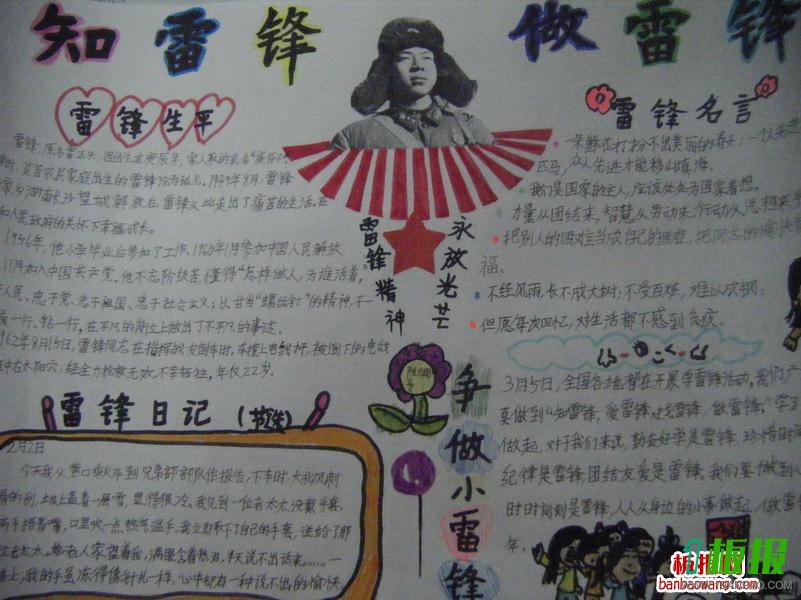 知雷锋 做雷锋
雷锋生平
雷锋，原名雷正兴，
农民家庭出生的雷锋沦为孤儿。1949年8月，雷锋
家乡湖南长沙望城解放后，雷锋从此走出了痛苦的生活。在
和人民政府的关怀下幸福成长。
1956年，他小学毕业后参加了工作，1960年1月参加中国人民解放
11月加入中国共产党。他不忘阶级苦，懂得“怎样做人，为谁活着”，
人民、忠于党、忠于祖国、忠于社会主义；以甘当“螺丝钉”的精神，干一
爱一行、钻一行，在平凡的岗位上做出了不平凡的事迹。
962年8月15日，雷锋同志在指挥战友倒车时，车撞上电线杆，被倒下的电线
中右太阳穴，经全力抢救无效，不幸牺牲，年仅22岁。
雷锋精神
永放光芒
雷锋名言
一朵鲜花打扮不出美丽的春天，一个人先进
匹马，众人先进才能移山填海。
我们是国家的主人，应该处处为国家着想。
力量从团结来，智慧从劳动来，行动从思想来
把别人的困难当成自己的困难，把同志的愉快
福。
不经风雨，长不成大树；不受百炼，难以成钢。
但愿每次回忆，对生活都不感到负疚。
3月5日，全国各地都在开展学雷锋活动，我们
要做到“知雷锋，爱雷锋，做雷锋。”学习
做起，对于我们来说，勤奋好学是雷锋，珍惜时
纪律是雷锋，团结友爱是雷锋。我们要做到
时时刻刻是雷锋，人人从身边的小事做起，做雷
年。
雷锋日记
2月2日
今天我从营口乘火车到兄弟部队作报告，下车时，大北风刺
骨的刮，地上盖着一层雪，显得很冷。我见到一位老太太没戴手套，
两手捂着嘴，口里吹一点热气温手。我立即取下了自己的手套，送给了那
位老太太。她老人家望着我，满眼含着热泪，半天说不出话来……一
路上，我的手虽冻得像针扎一样，心中却有一种说不出的愉快
争做小雷锋
板报
banbaowang.com